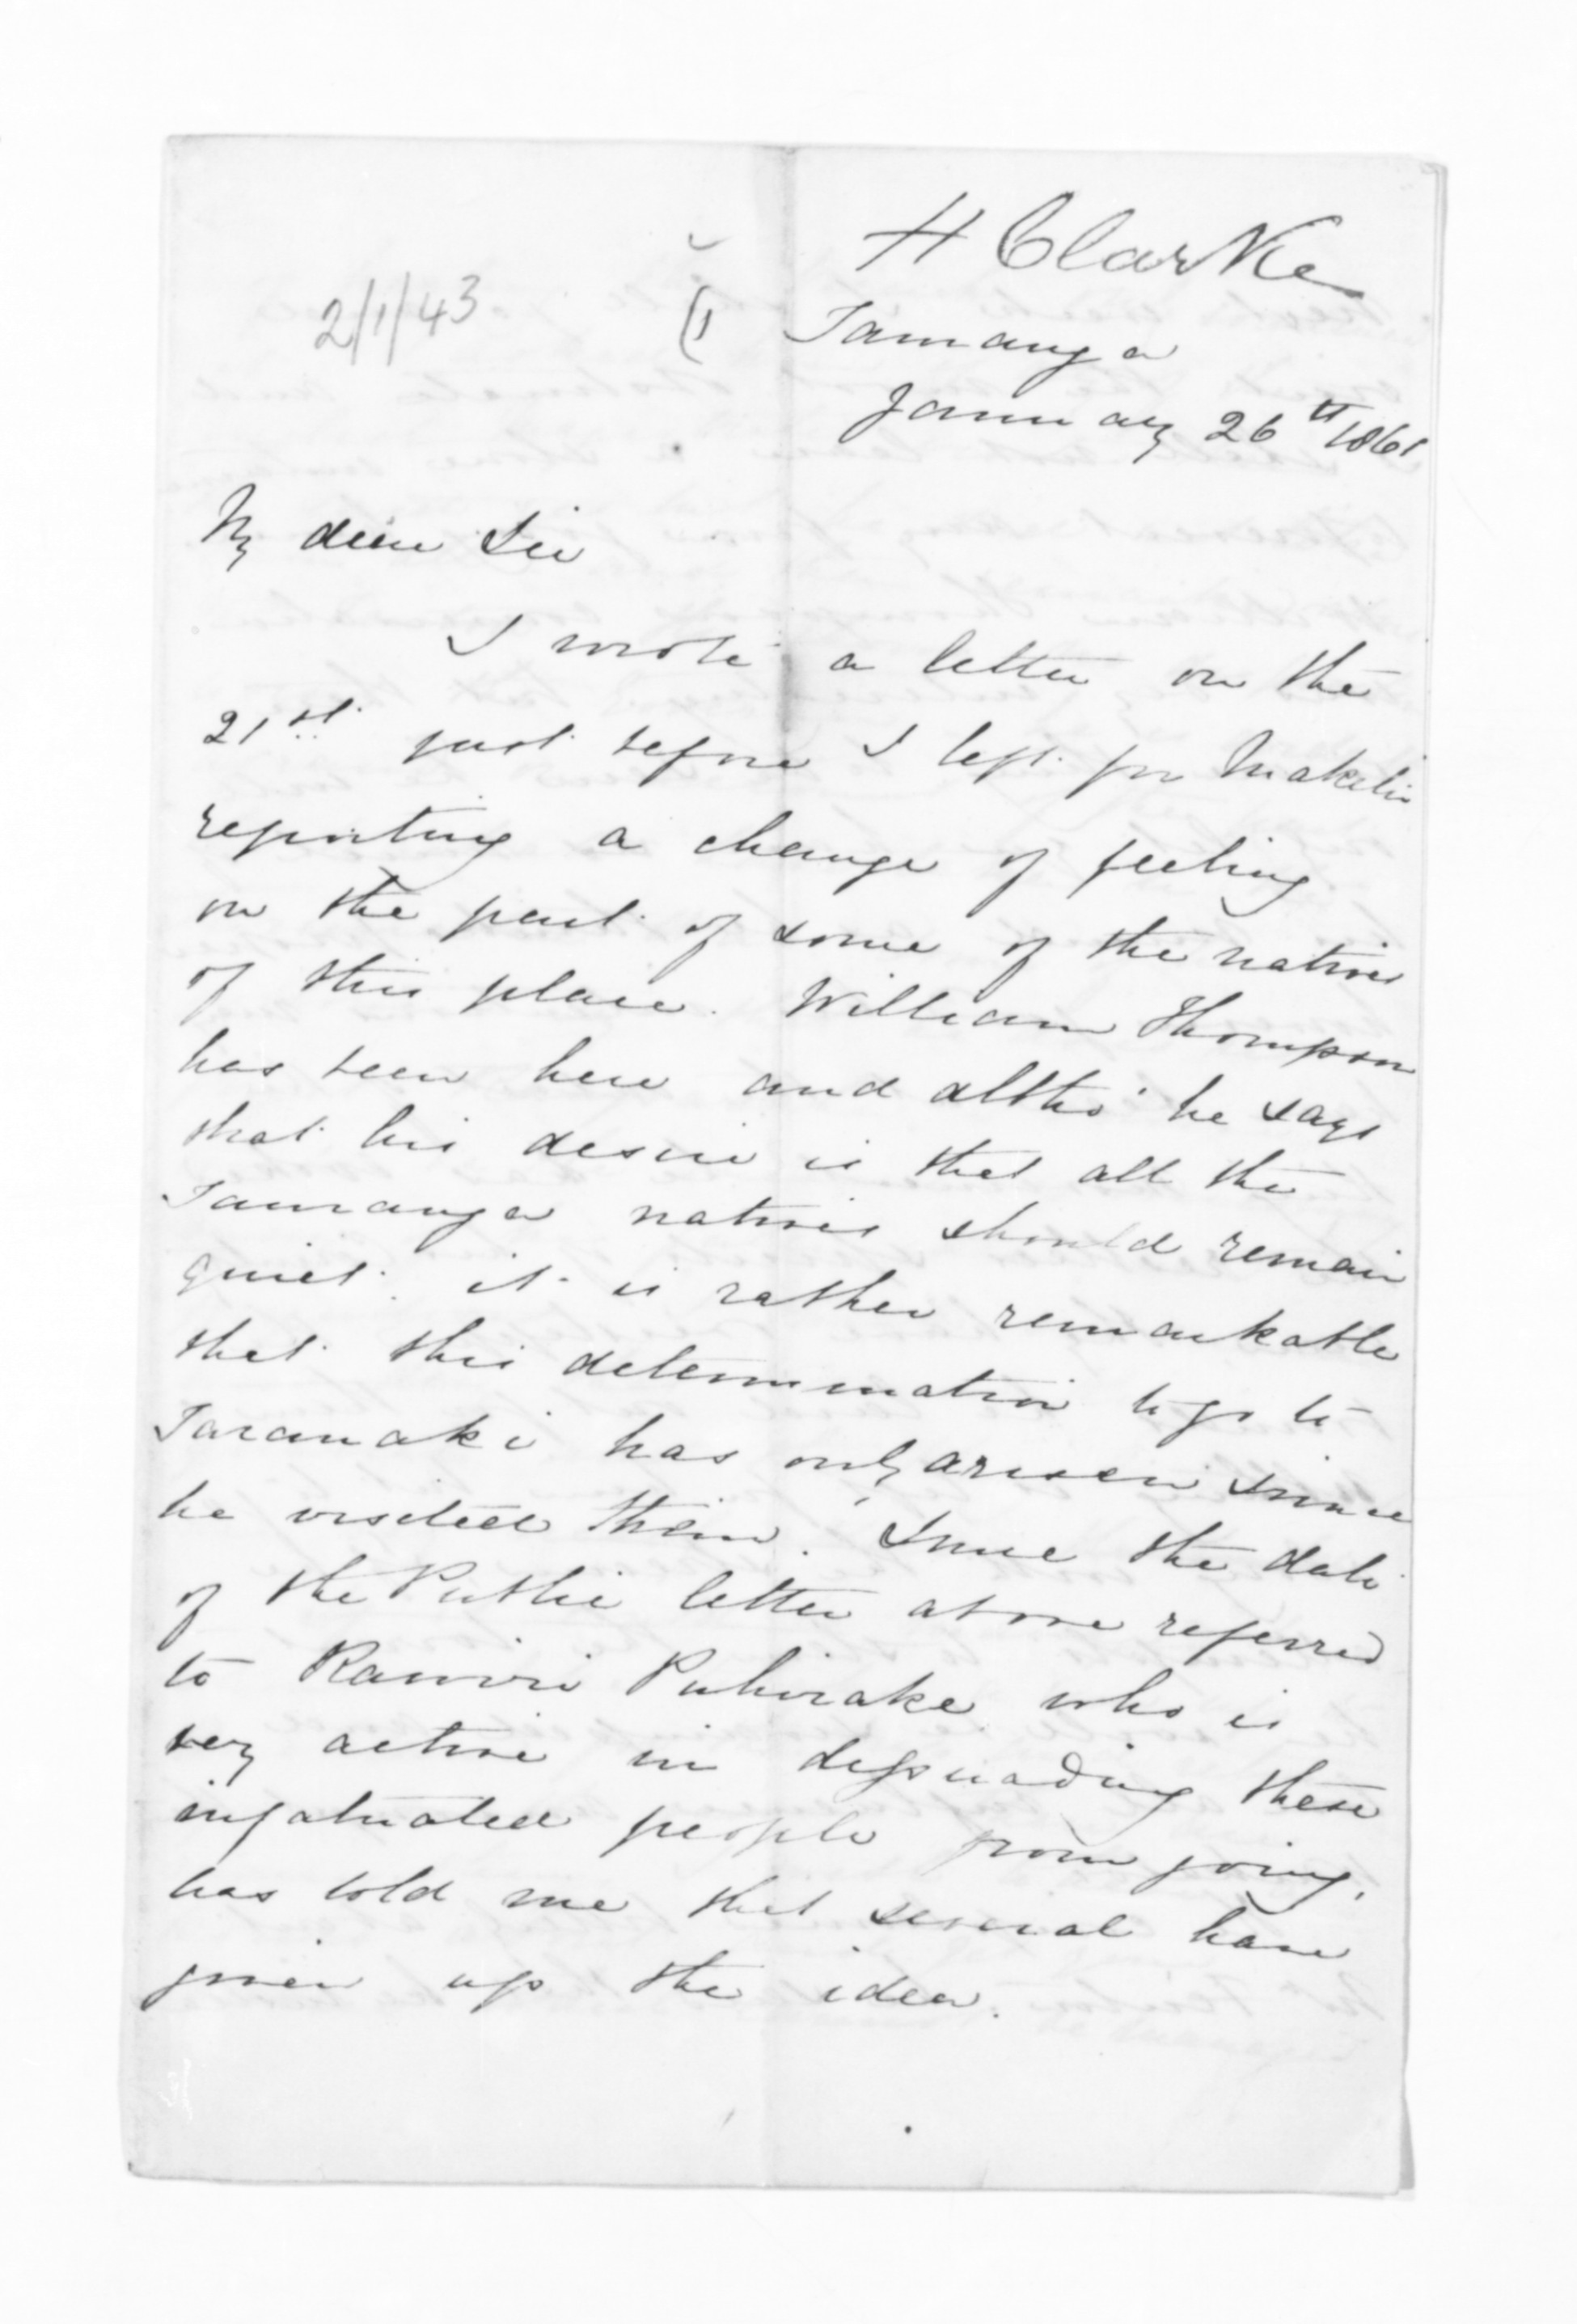 H Clarke
2/1/43
Tauranga
January 26th 1861
My dear Sir
I wrote a letter on the
21st just before I left for Maketu
reporting a change of feeling
on the part of some of the natives
of this place. William Thompson
has been here and altho' he says
that his desire is that all the
Tauranga natives should remain
quiet. it is rather remarkable
that this determination to go to
Taranaki has only arisen since
he visited them. Since the date
of the Public letter above referred
to Rawiri Puhirake who is
very active in dissuading these
infatuated people from going,
has told me that several have
given up the idea.